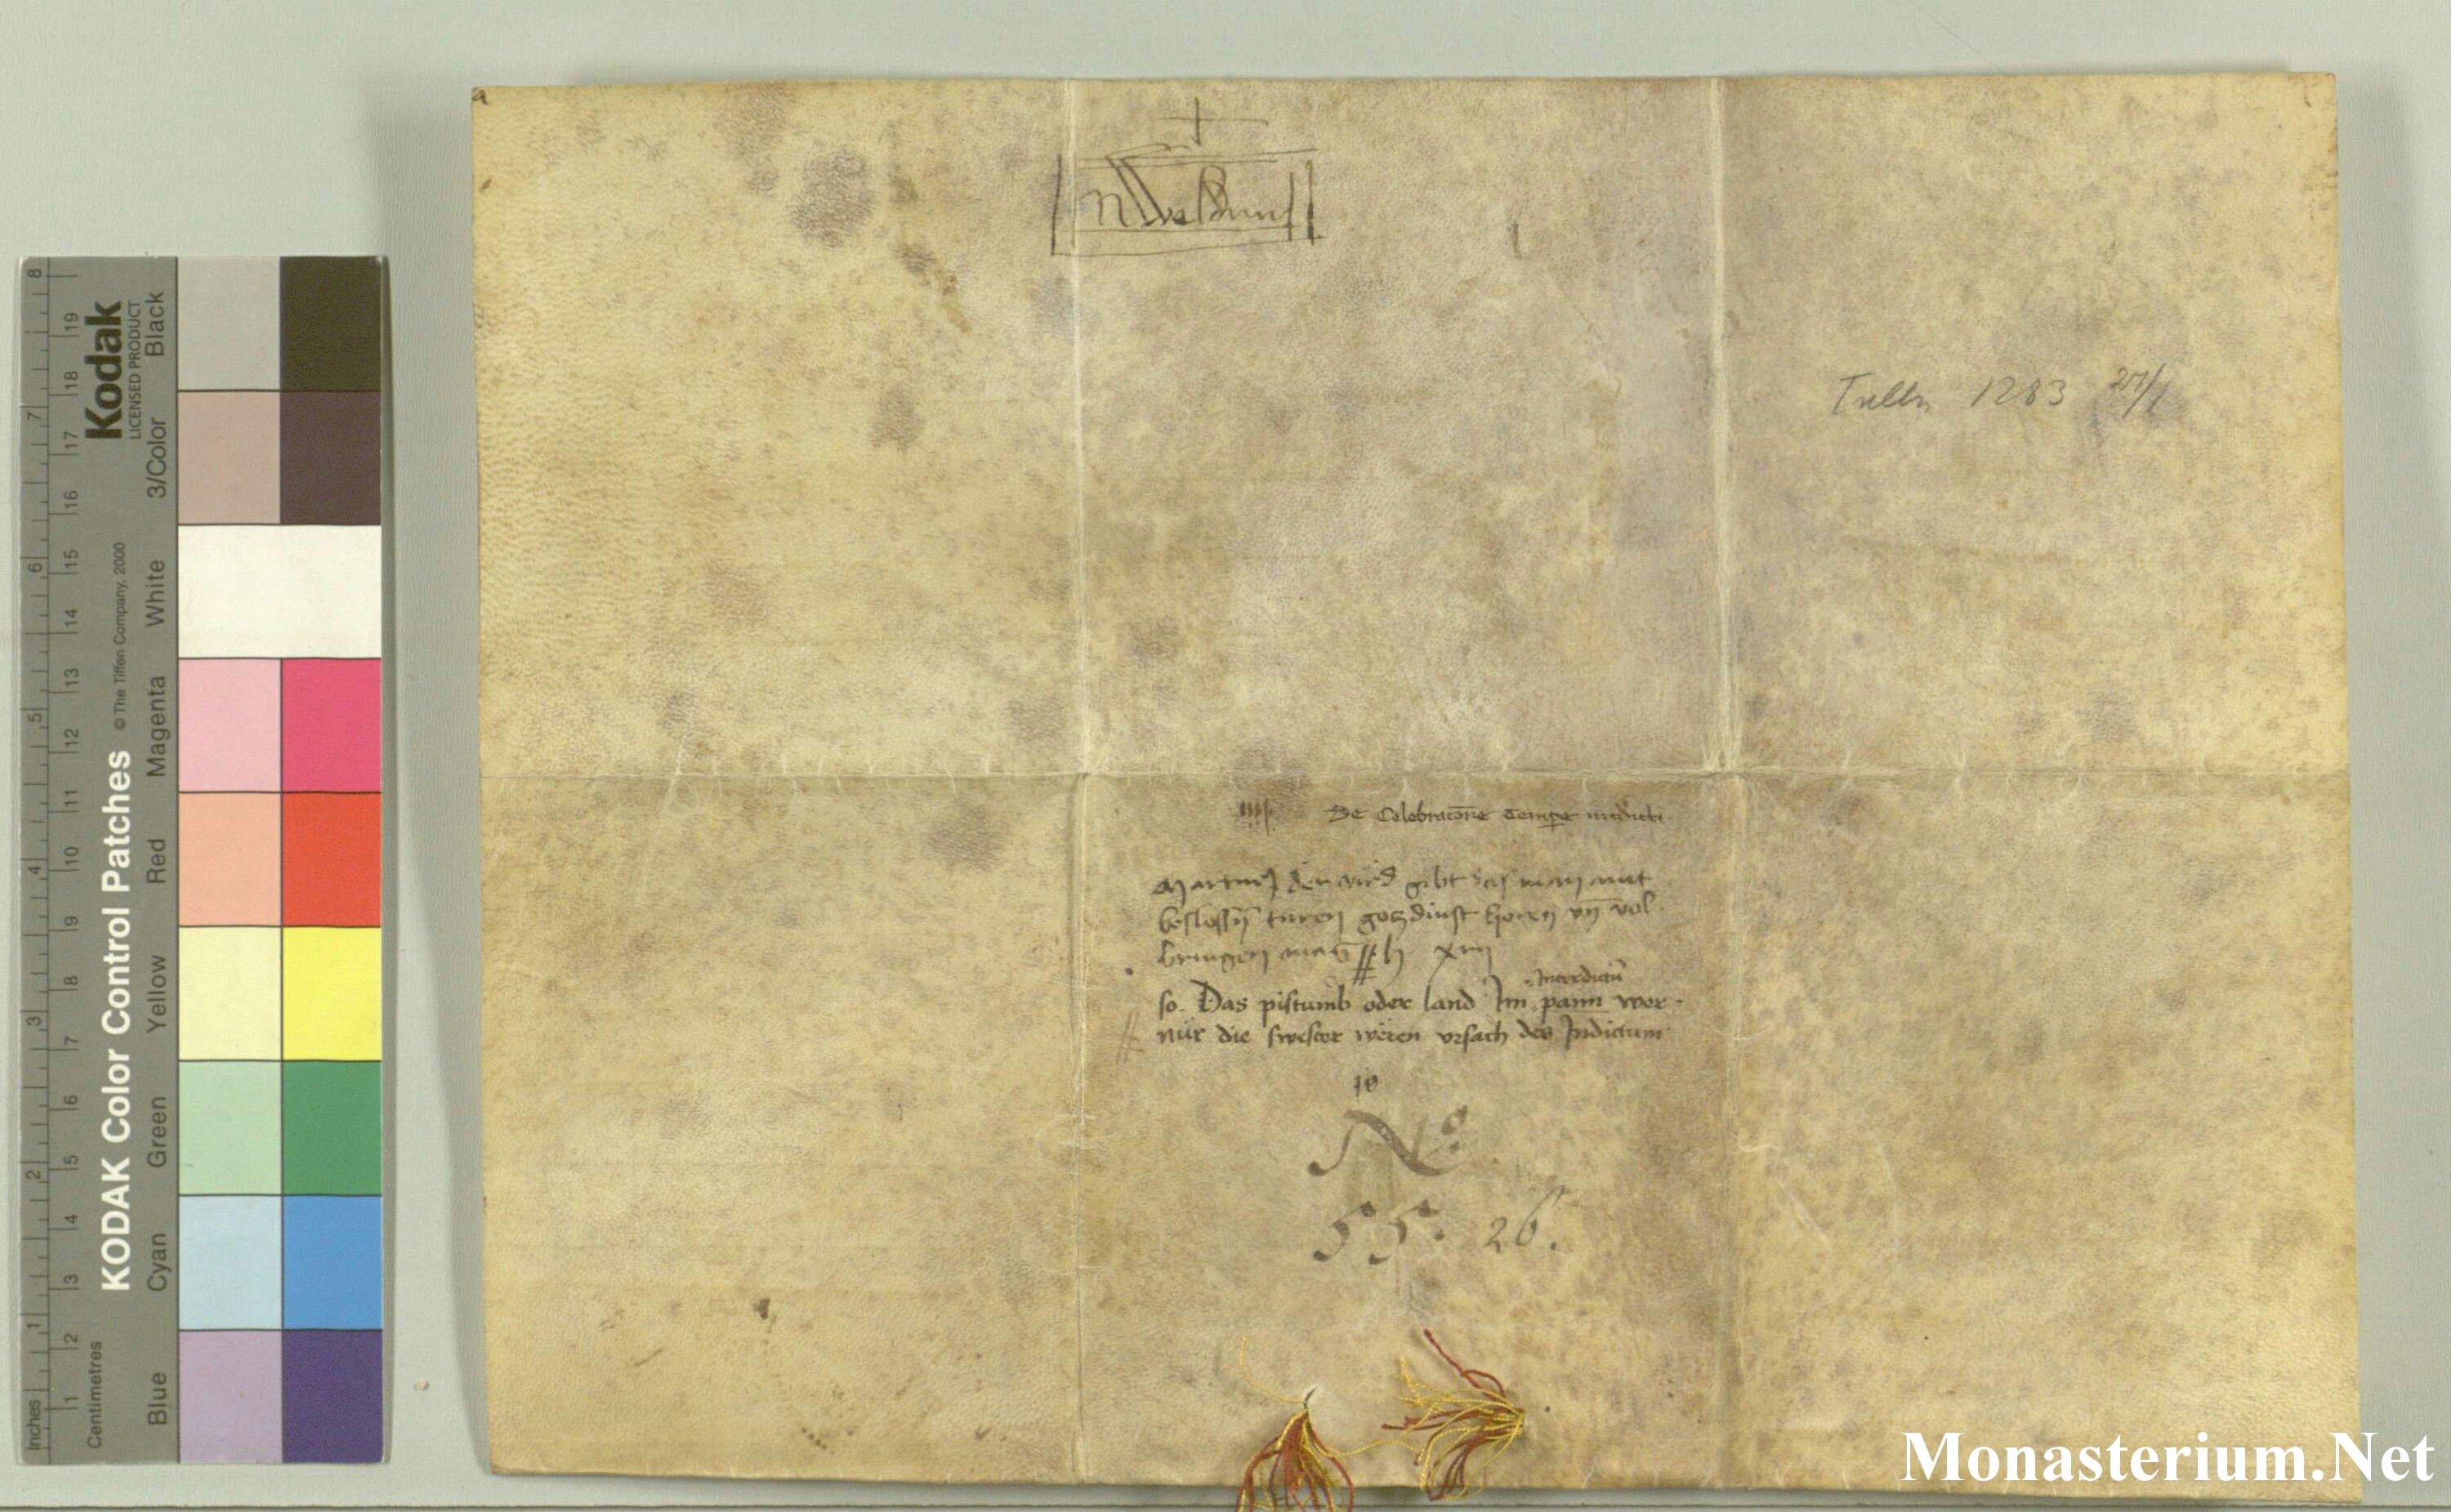 Tulln 1283 27/1
IIII De Celebratōne Tempe interdicti.
Martin9 der vierd gibt das man mit
beslossn̄ turen gotzdinst horen vn̄ vol
bringen mag H xvij
Interdictū
so. Das pistumb oder land Im pann wer
nür die swester weren vrsach des Indictum
10
No.
55. 26.
Kodak
LICENSED PRODUCT
KODAK Color Control Patches © The Tiffen Company, 2000
Black
3/Color
White
Magenta
Red
Yellow
Green
Cyan
Blue
Inches 1 2 3 4 5 6 7 8
Centimetres 1 2 3 4 5 6 7 8 9 10 11 12 13 14 15 16 17 18 19
Monasterium.Net